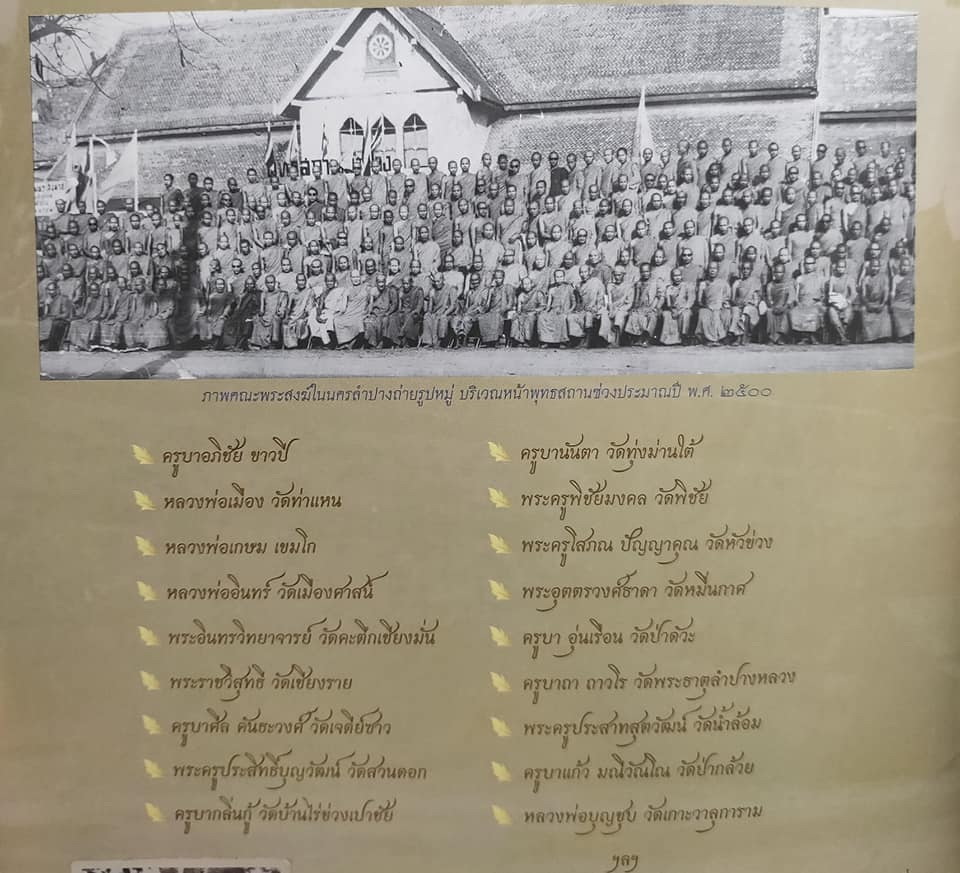 ภาพคณะพระสงฆ์ในนครลำปางถ่ายรูปหมู่ บริเวณหน้าพุทธสถานช่วงประมาณปี พ.ศ. ๒๕๐๐
ครูบาอภิชัย ขาวปี
หลวงพ่อเมือง วัดท่าแหน
หลวงพ่อเกษม เขมโก
หลวงพ่ออินทร์ วัดเมืองศาสน์
พระอินทรวิทยาจารย์ วัดคะตึกเชียงมั่น
พระราชวิสุทธี วัดเชียงราย
ครูบาศีล คันธะวงศ์ วัดเจดีย์ซาว
พระครูประสิทธิ์บุญวัฒน์ วัดสวนดอก
ครูบากลิ่นกู้ วัดบ้านไร่ข่วงเปาชัย
ครูบานันตา วัดทุ่งม่านใต้
พระครูพิชัยมงคล วัดพิชัย
พระครูโสภณ ปัญญาคุณ วัดหัวข่วง
พระอุตตรวงศ์ธาดา วัดหมื่นกาศ
ครูบา อุ่นเรือน วัดป่าดัวะ
ครูบาถา ถาวโร วัดพระธาตุลำปางหลวง
พระครูประสาทสุตวัฒน์ วัดน้ำล้อม
ครูบาแก้ว มณีวัณโณ วัดป่ากล้วย
หลวงพ่อบุญชุบ วัดเกาะวาลุการาม
ฯลฯ